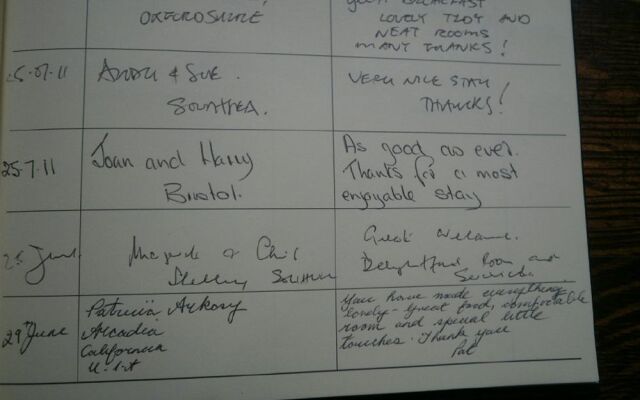 OXFORDSHIRE
GOOD BREAKFAST
LOVELY TIDY AND
NEAT ROOMS
MANY THANKS!
25.07.11
ANDY & SUE.
SOUTHSEA.
VERY NICE STAY
THANKS!
25.7.11
Joan and Harry
Bristol.
As good as ever.
Thanks for a most
enjoyable stay
June
&
Great welcome.
Delightful Room and
29th June
Patricia Arkosy
Arcadia
California
U.S.A
You have made everything
lovely - great food, comfortable
room and special little
touches. Thank you
Pat